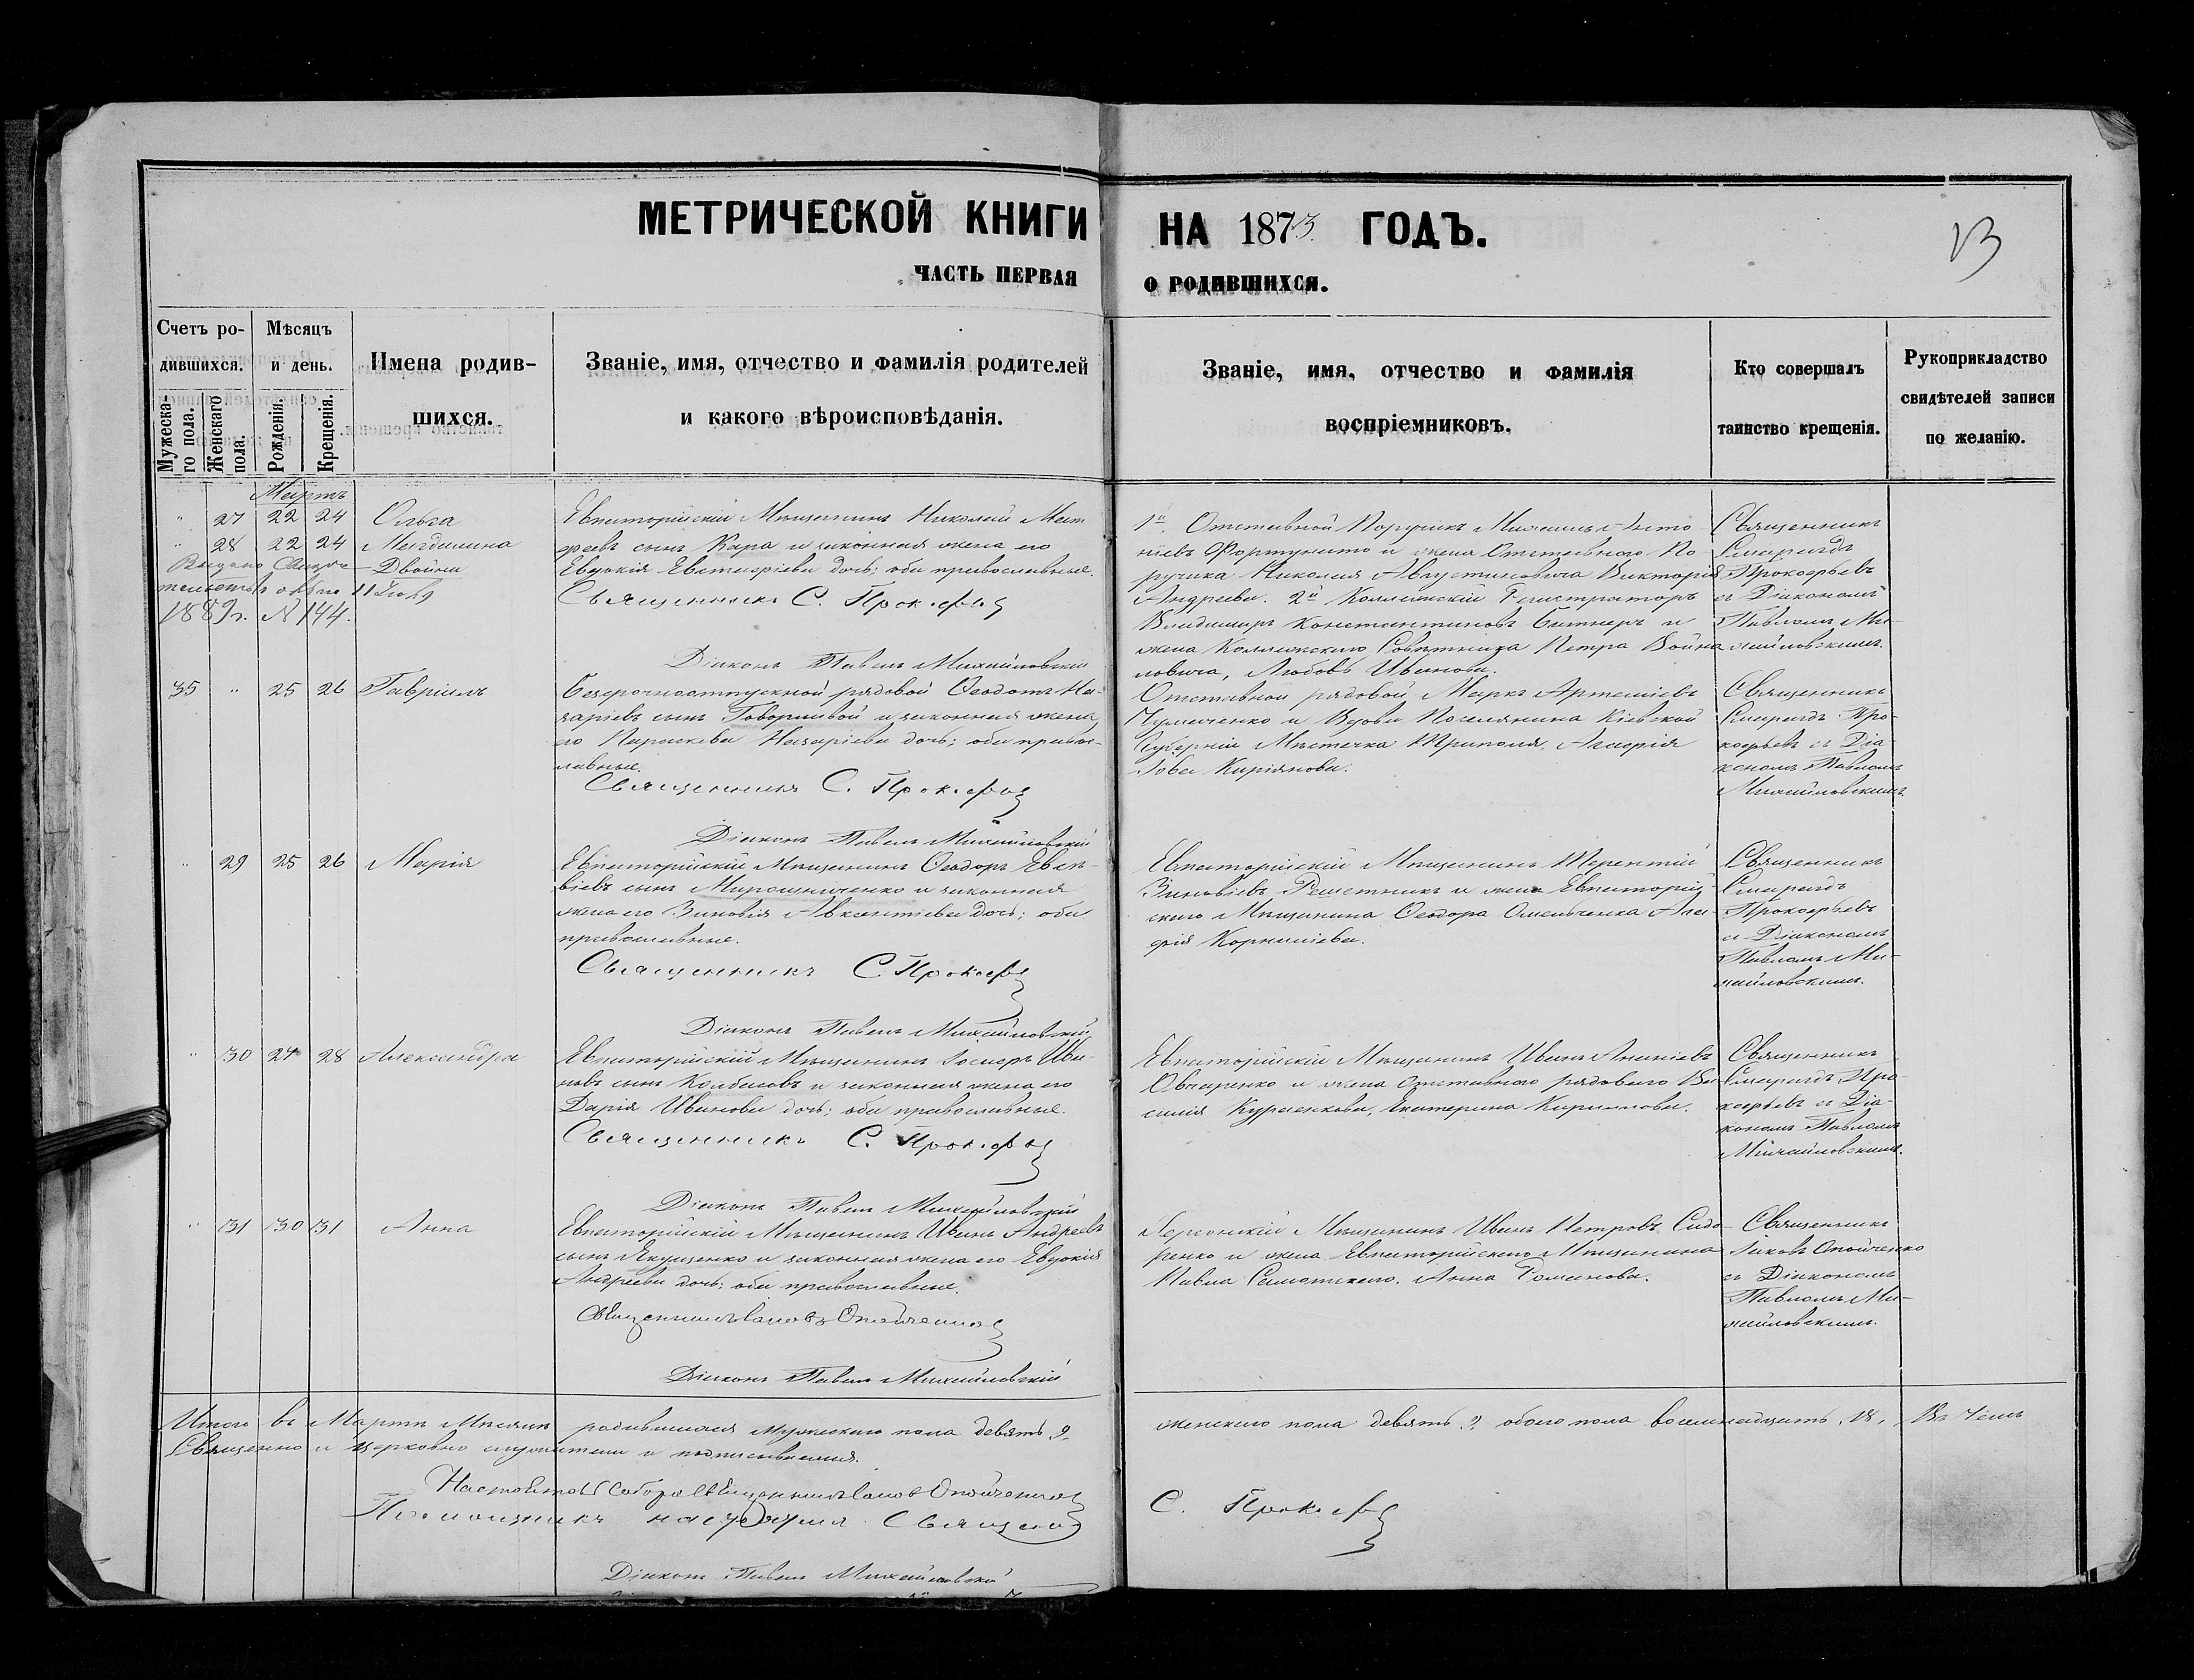 МЕТРИЧЕСКОЙ КНИГИ НА 1873 ГОДЪ.
13
ЧАСТЬ ПЕРВАЯ О РОДИВШИХСЯ.
Счетъ ро-
дившихся.
Мужеска-
го пола.
Женскаго
пола.
Мѣсяцъ
и день.
Рожденія.
Крещенія.
Имена родив-
шихся.
Званіе, имя, отчество и фамилія родителей
и какого вѣроисповѣданія.
Званіе, имя, отчество и фамилія
воспріемниковъ.
Кто совершалъ
таинство крещенія.
Рукоприкладство
свидѣтелей записи
по желанію.
Мартъ
" 27 22 24 Ольга
" 28 22 24 Магдалина
Двойни
1889г. N 144.
Евпаторійскій Мѣщанинъ Николай Мат
феевъ сынъ Кара и законная жена его
Евдокія Евстафіева дочь; оба православные.
Священникъ С. Прокофьев
Діаконъ Павелъ Михайловскій
1й Отставной Поручикъ Михаилъ Анто
ніевъ Фортунато и жена Отставнаго По-
ручика Николая Августиновича Викторія
Андреева. 2й Коллежскій Регистраторъ
Владимиръ Константиновъ и
жена Коллежскаго Совѣтника Петра Война
новича, Любовь Иванова.
Священникъ
Смарагдъ
Прокофьевъ
съ Діакономъ
Павломъ Ми-
хайловскимъ.
35 " 25 26 Гавріилъ
Безсрочноотпускной рядовой Ѳеодотъ На-
заріевъ сынъ Говорливой и законная жена
его Параскева Назаріева дочь; оба правос-
лавные.
Священникъ С. Прокофьев
Діаконъ Павелъ Михайловскій
Отставной рядовой Маркъ Артеміевъ
Чумаченко и Вдова Поселянина Кіевской
Губерніи Мѣстечка Триполя, Агафія
Кирьянова.
Священникъ
Смарагдъ Про-
кофьевъ съ Діа-
кономъ Павломъ
Михайловскимъ.
" 29 25 26 Марія
Евпаторійскій Мѣщанинъ Ѳеодоръ Евла-
віевъ сынъ Мирошниченко и законная
жена его Зиновія Авксентіева дочь; оба
православные.
Священникъ С. Прокофьев
Діаконъ Павелъ Михайловскій
Евпаторійскій Мѣщанинъ Терентій
Зиновіевъ Решетникъ и жена Евпаторій-
скаго Мѣщанина Ѳеодора Омельченка Ага-
фія Корниліева.
Священникъ
Смарагдъ
Прокофьевъ
съ Діакономъ
Павломъ Ми-
хайловскимъ.
" 30 27 28 Александра
Евпаторійскій Мѣщанинъ Іосифъ Ива-
новъ сынъ Колбасовъ и законная жена его
Дарія Иванова дочь; оба православные.
Священникъ С. Прокофьев
Діаконъ Павелъ Михайловскій
Евпаторійскій Мѣщанинъ Иванъ Ананіевъ
Овчаренко и жена Отставнаго рядоваго Ва-
силія Курасенкова, Екатерина Кириллова.
Священникъ
Смарагдъ Про-
кофьевъ съ Діа-
кономъ Павломъ
Михайловскимъ.
" 31 30 31 Анна
Евпаторійскій Мѣщанинъ Иванъ Андреевъ
сынъ Якущенко и законная жена его Евдокія
Андреева дочь; оба православные.
Священникъ Іаковъ Опойченко
Діаконъ Павелъ Михайловскій
Херсонскій Мѣщанинъ Иванъ Петровъ Сидо-
ренко и жена Евпаторійскаго Мѣщанина
Павла Анна Романова.
Священникъ
Іаковъ Опойченко
съ Діакономъ
Павломъ Ми-
хайловскимъ.
Итого въ Мартѣ Мѣсяцѣ родившихся мужескаго пола девять 9, женскаго пола девять 9, обоего пола восемнадцать, 18, Въ чемъ
Священно и церковно служители и подписываемся.
Настоятель Собора Священникъ Іаковъ Опойченко
Помощникъ настоятеля Священ. С. Прокофьев
Діаконъ Павелъ Михайловскій